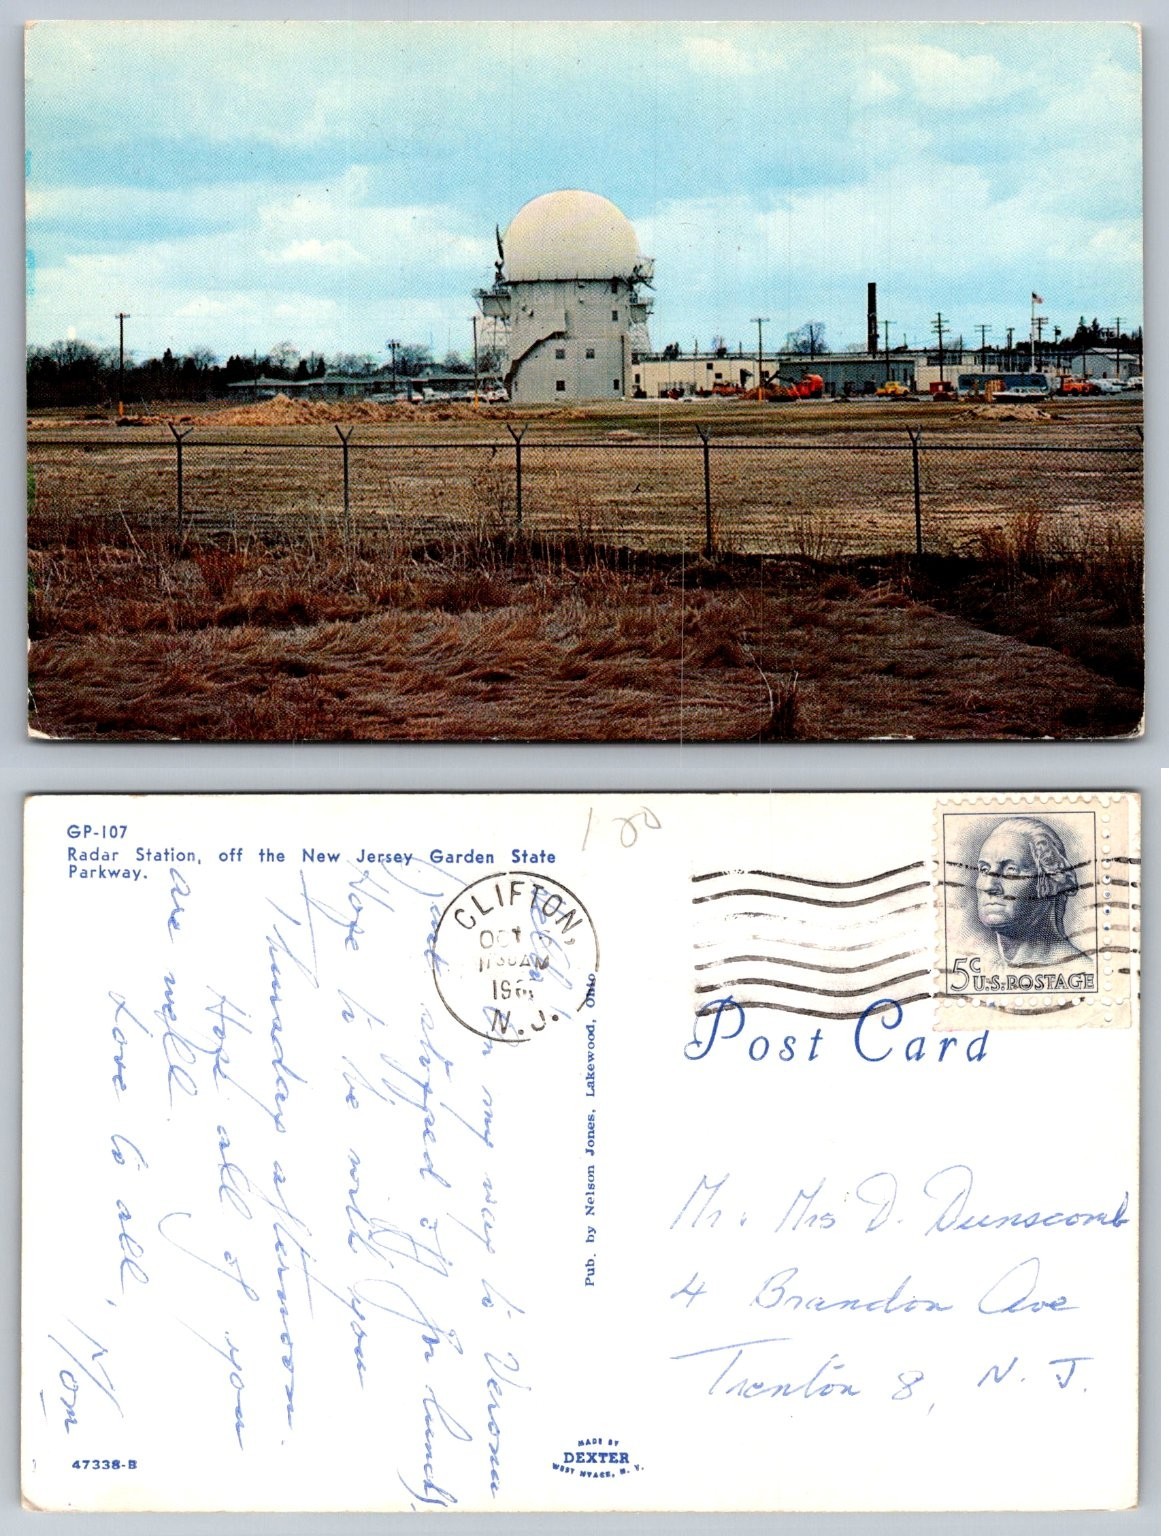 GP-107
Radar Station, off the New Jersey Garden State
Parkway.
180
CLIFTON,
OCT
1130AM
196
N.J.
5c
U.S. POSTAGE
Post Card
on my way to Verona
and stopped off for lunch.
Hope to be with you
Thursday afternoon.
Hope all of you
are well.
Love to all,
Mom
Pub. by Nelson Jones, Lakewood, Ohio
Mr. Mrs D. Dunscomb
4 Brandon Ave
Trenton 8, N. J.
47338-B
MADE BY
DEXTER
WEST NYACK, N. Y.